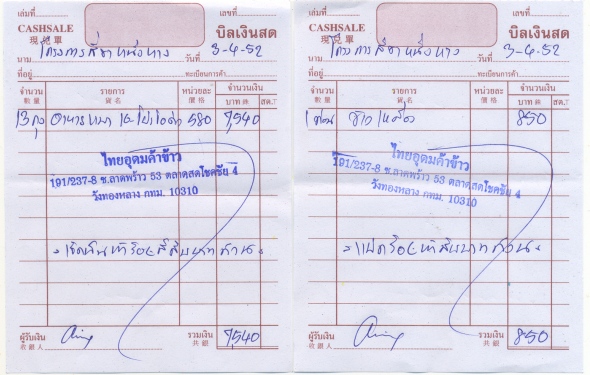 เล่มที่
เลขที่
CASHSALE
現兌單
บิลเงินสด
นาม โครงการสี่ขาหนึ่งทาง วันที่ 3-4-52
ที่อยู่ ทะเบียนการค้า
จำนวน รายการ หน่วยละ จำนวนเงิน
數量 貨名 價格 บาท 銖 สต.
13 ถุง อาหารหมา 580 7,540
ไทยอุดมค้าข้าว
191/237-8 ซ.ลาดพร้าว 53 ตลาดสดโชคชัย 4
วังทองหลาง กทม. 10310
เจ็ดพันห้าร้อยสี่สิบบาทถ้วน
ผู้รับเงิน รวมเงิน 7,540
收銀人 共銀
เล่มที่
เลขที่
CASHSALE
現兌單
บิลเงินสด
นาม โครงการสี่ขาหนึ่งทาง วันที่ 3-4-52
ที่อยู่ ทะเบียนการค้า
จำนวน รายการ หน่วยละ จำนวนเงิน
數量 貨名 價格 บาท 銖 สต.
ข้าวเหนียว 850
ไทยอุดมค้าข้าว
191/237-8 ซ.ลาดพร้าว 53 ตลาดสดโชคชัย 4
วังทองหลาง กทม. 10310
แปดร้อยห้าสิบบาทถ้วน
ผู้รับเงิน รวมเงิน 850
收銀人 共銀